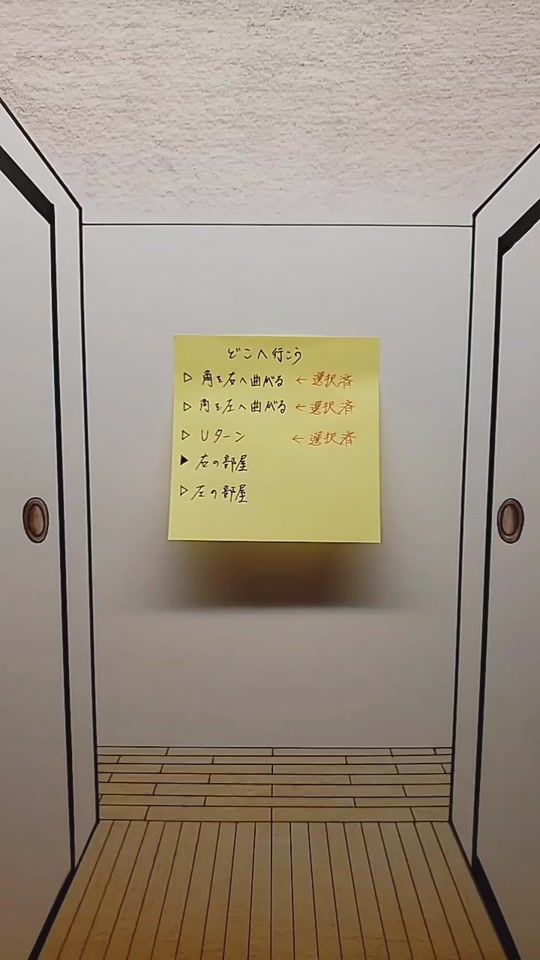 どこへ行こう
▷ 角を右へ曲がる ← 選択済
▷ 角を左へ曲がる ← 選択済
▷ Uターン ← 選択済
▶ 右の部屋
▷ 左の部屋